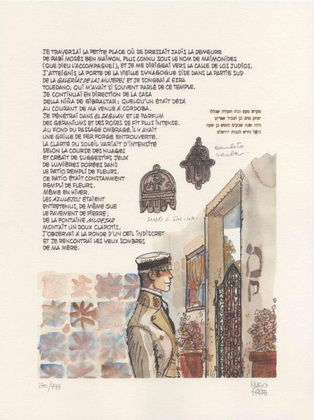 JE TRAVERSAI LA PETITE PLACE OÙ SE DRESSAIT JADIS LA DEMEURE
DE RABI MOSÉS BEN MAIMON, PLUS CONNU SOUS LE NOM DE MAÏMONIDES
(QUE DIEU L'ACCOMPAGNE), ET JE ME DIRIGEAI VERS LA CALLE DE LOS JUDÍOS.
J'ATTEIGNIS LA PORTE DE LA VIEILLE SYNAGOGUE SISE DANS LA PARTIE SUD
DE LA GALERÍAS DE LAS MUJERES ET JE SONGEAI À EZRA
TOLEDANO, QUI M'AVAIT SI SOUVENT PARLÉ DE CE TEMPLE.
JE CONTINUAI EN DIRECTION DE LA CASA
DE LA NIÑA DE GIBRALTAR; QUELQU'UN ÉTAIT DÉJÀ
AU COURANT DE MA VENUE À CORDOBA.
JE PÉNÉTRAI DANS EL ZAGUÁN ET LE PARFUM
DES GÉRANIUMS ET DES ROSES SE FIT PLUS INTENSE.
AU FOND DU PASSAGE OMBRAGÉ, IL Y AVAIT
UNE GRILLE DE FER FORGÉ ENTROUVERTE.
LA CLARTÉ DU SOLEIL VARIAIT D'INTENSITÉ
SELON LA COURSE DES NUAGES
ET CRÉAIT DE SUGGESTIFS JEUX
DE LUMIÈRES DORÉES DANS
LE PATIO REMPLI DE FLEURS.
CE PATIO ÉTAIT CONSTAMMENT
REMPLI DE FLEURS,
MÊME EN HIVER.
LES AZULEJOS ÉTAIENT
ENTRETENUS, DE MÊME QUE
LE PAVEMENT DE PIERRE;
DE LA FONTAINE MUDÉJAR
MONTAIT UN DOUX CLAPOTIS,
J'OBSERVAI À LA RONDE D'UN ŒIL INDISCRET
ET JE RENCONTRAI LES YEUX SOMBRES
DE MA MÈRE.